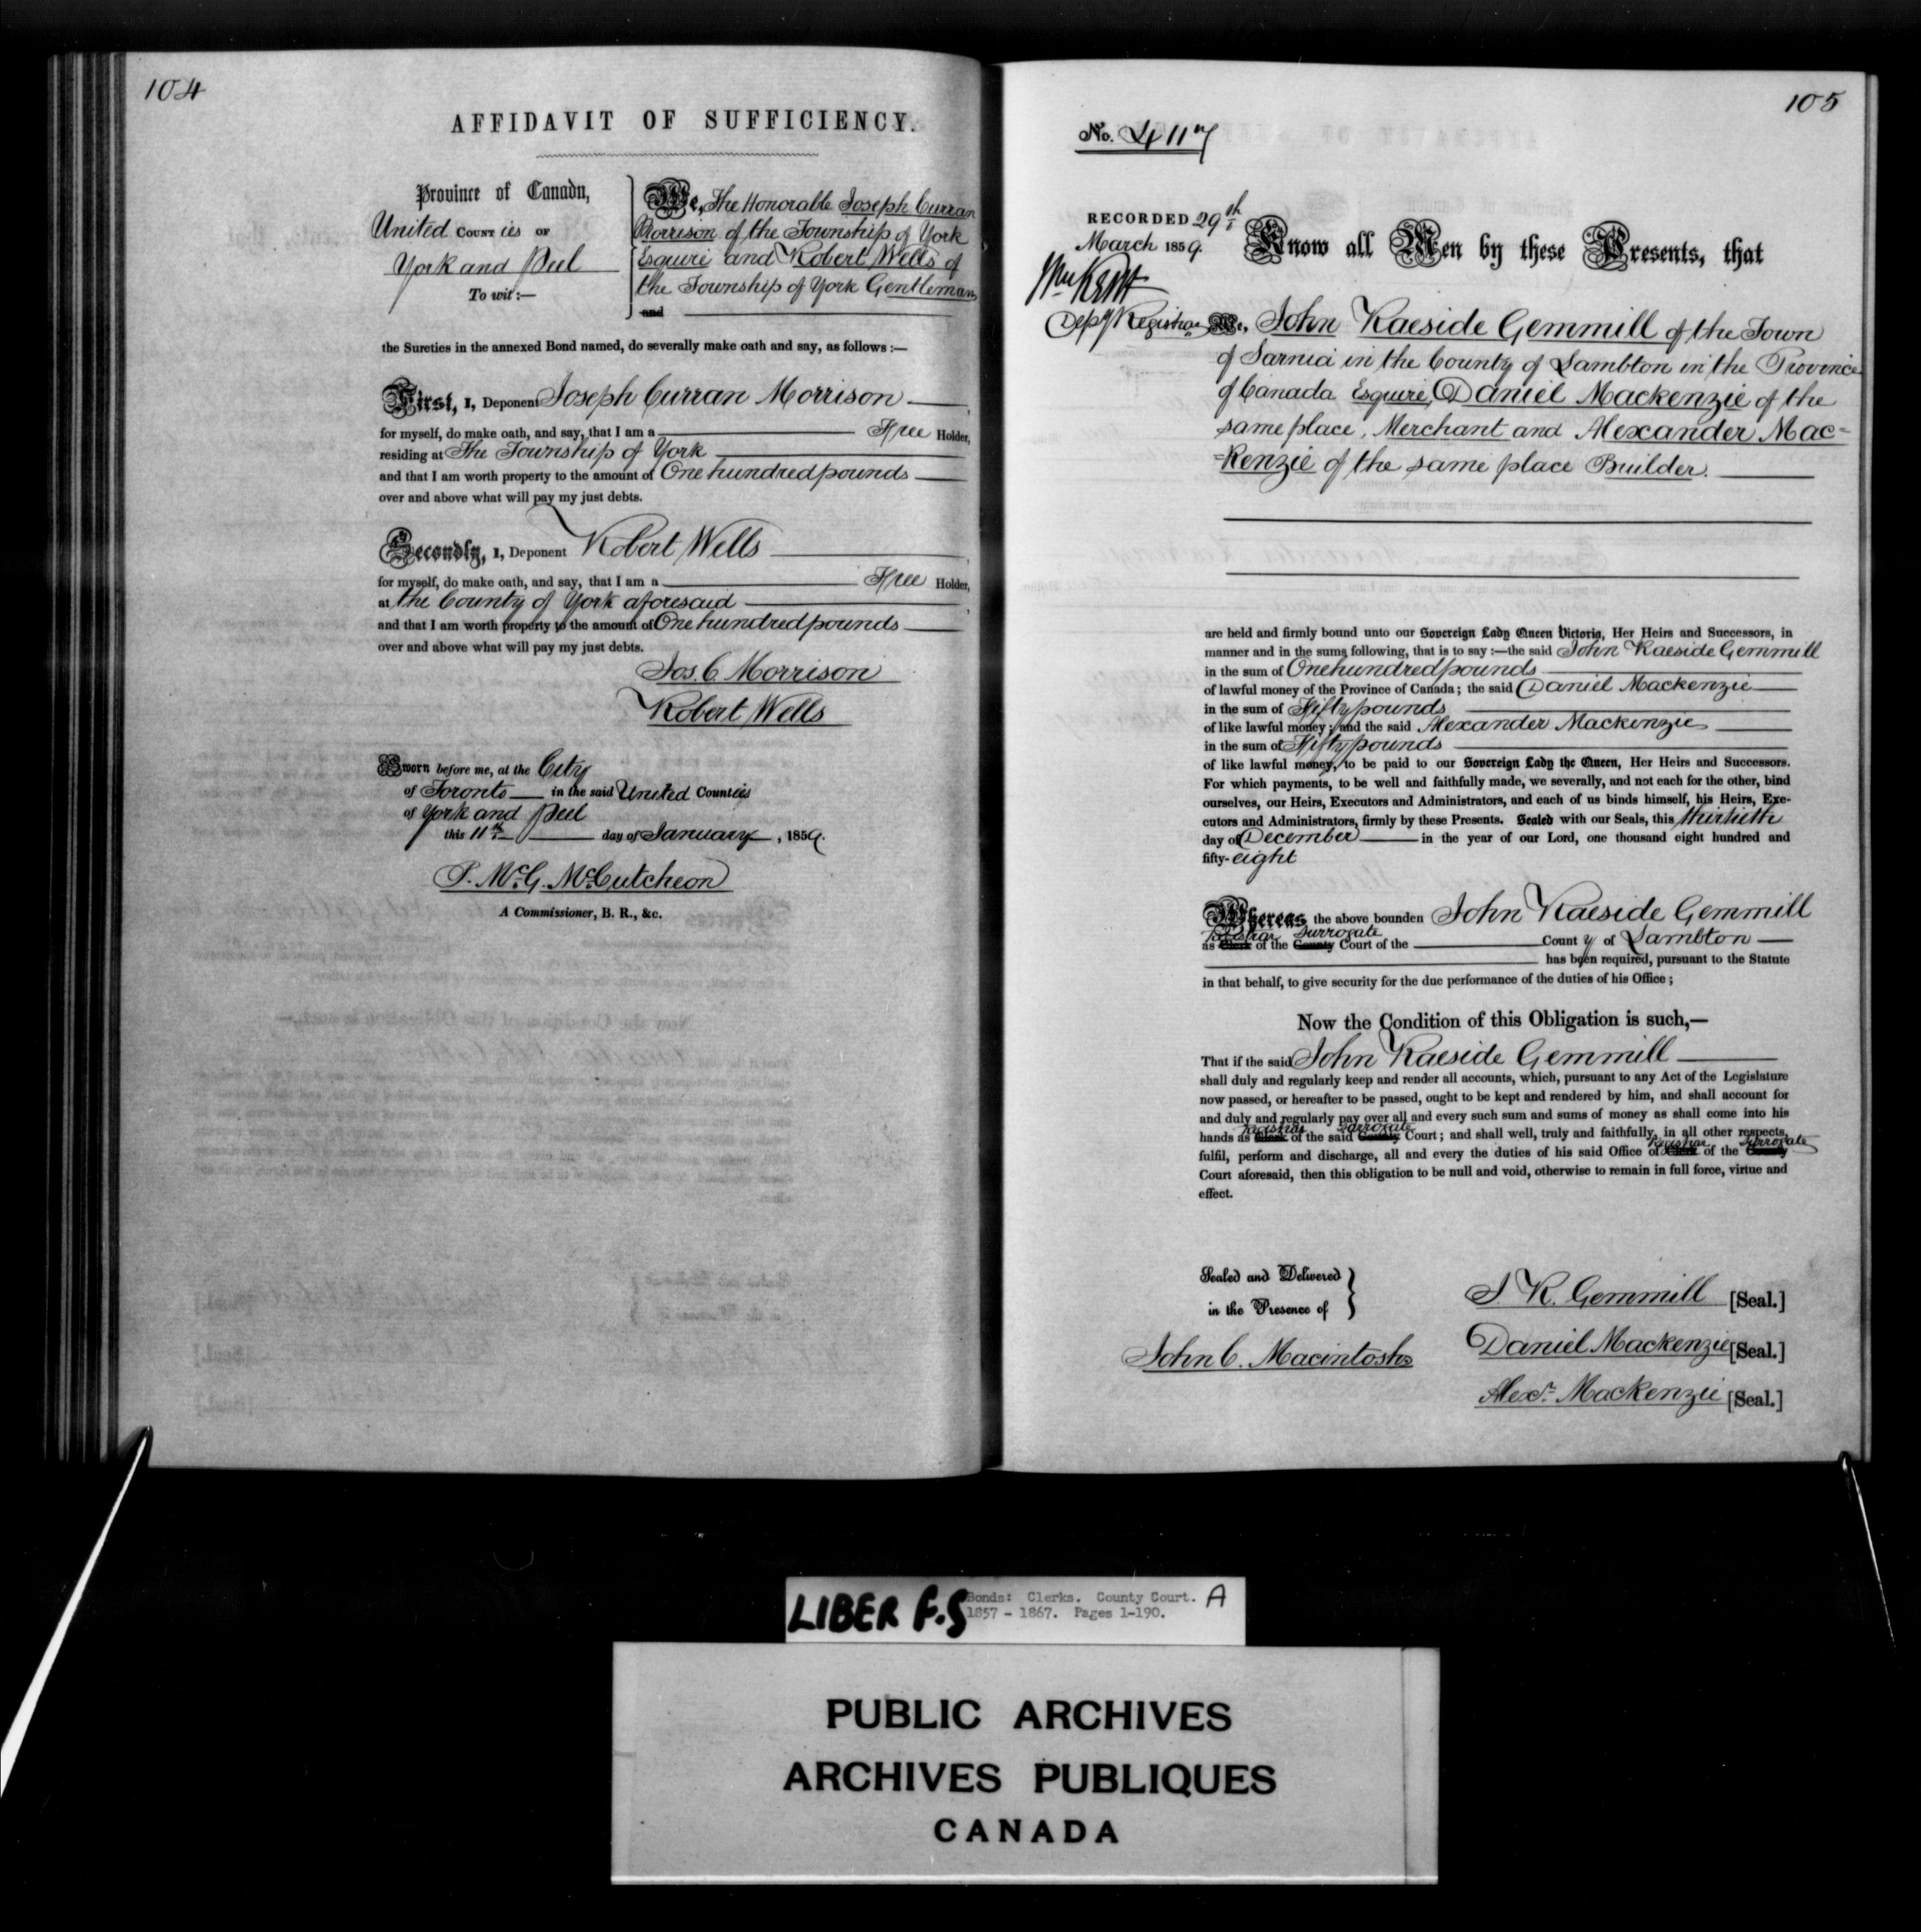 104
AFFIDAVIT OF SUFFICIENCY.
Province of Canada,
United COUNTies OF
York and Peel
To wit:—
We, The Honorable Joseph Curran
Morrison of the Township of York
Esquire and Robert Wells of
the Township of York Gentleman
and
the Sureties in the annexed Bond named, do severally make oath and say, as follows:—
First, I, Deponent Joseph Curran Morrison
for myself, do make oath, and say, that I am a Free Holder,
residing at The Township of York
and that I am worth property to the amount of One hundred pounds
over and above what will pay my just debts.
Secondly, I, Deponent Robert Wells
for myself, do make oath, and say, that I am a Free Holder,
at the County of York aforesaid
and that I am worth property to the amount of One hundred pounds
over and above what will pay my just debts.
Jos. C. Morrison
Robert Wells
Sworn before me, at the City
of Toronto in the said United Counties
of York and Peel
this 11th day of January, 1859.
P. McG. McCutcheon
A Commissioner, B. R., &c.
105
No. 4117
RECORDED 29th
March 1859.
Wm Kent
Depy Registrar
Know all Men by these Presents, that
We, John Raeside Gemmill of the Town
of Sarnia in the County of Lambton in the Province
of Canada Esquire, Daniel Mackenzie of the
same place, Merchant and Alexander Mac=
=kenzie of the same place Builder.
are held and firmly bound unto our Sovereign Lady Queen Victoria, Her Heirs and Successors, in
manner and in the sums following, that is to say:—the said John Raeside Gemmill
in the sum of One hundred pounds
of lawful money of the Province of Canada; the said Daniel Mackenzie
in the sum of Fifty pounds
of like lawful money; and the said Alexander Mackenzie
in the sum of Fifty pounds
of like lawful money, to be paid to our Sovereign Lady the Queen, Her Heirs and Successors.
For which payments, to be well and faithfully made, we severally, and not each for the other, bind
ourselves, our Heirs, Executors and Administrators, and each of us binds himself, his Heirs, Exe-
cutors and Administrators, firmly by these Presents. Sealed with our Seals, this thirtieth
day of December in the year of our Lord, one thousand eight hundred and
fifty-eight
Whereas the above bounden John Raeside Gemmill
Registrar Surrogate
as Clerk of the County Court of the County of Lambton
has been required, pursuant to the Statute
in that behalf, to give security for the due performance of the duties of his Office;
Now the Condition of this Obligation is such,—
That if the said John Raeside Gemmill
shall duly and regularly keep and render all accounts, which, pursuant to any Act of the Legislature
now passed, or hereafter to be passed, ought to be kept and rendered by him, and shall account for
and duly and regularly pay over all and every such sum and sums of money as shall come into his
Registrar Surrogate
hands as Clerk of the said County Court; and shall well, truly and faithfully, in all other respects,
Registrar Surrogate
fulfil, perform and discharge, all and every the duties of his said Office of Clerk of the County
Court aforesaid, then this obligation to be null and void, otherwise to remain in full force, virtue and
effect.
Sealed and Delivered
in the Presence of
John C. Macintosh
J. R. Gemmill [Seal.]
Daniel Mackenzie [Seal.]
Alexr. Mackenzie [Seal.]
LIBER F.S
Bonds: Clerks. County Court. A
1857 - 1867. Pages 1-190.
PUBLIC ARCHIVES
ARCHIVES PUBLIQUES
CANADA